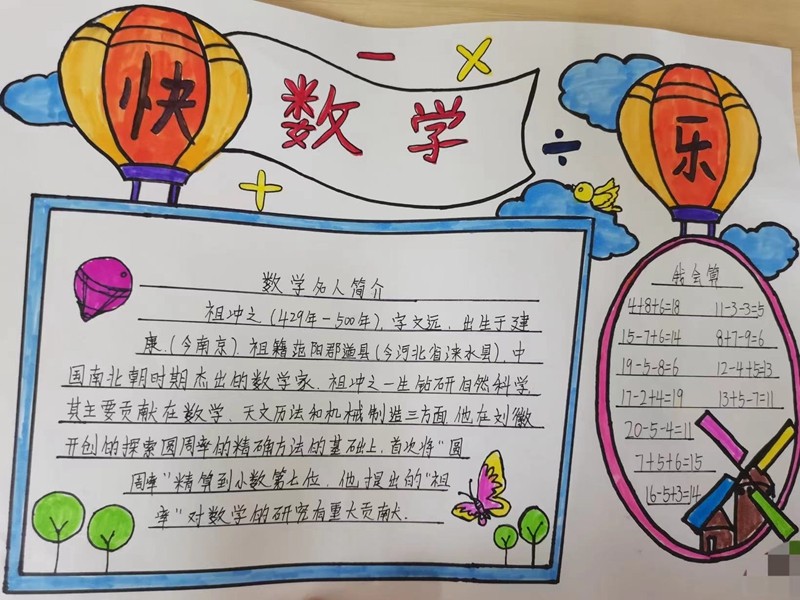 快 数 学 乐
数学名人简介
祖冲之(429年-500年),字文远,出生于建
康.(今南京).祖籍范阳郡遒县(今河北省涞水县).中
国南北朝时期杰出的数学家.祖冲之一生钻研自然科学
其主要贡献在数学、天文历法和机械制造三方面.他在刘徽
开创的探索圆周率的精确方法的基础上,首次将"圆
周率"精算到小数第七位.他提出的"祖
率"对数学的研究有重大贡献.
我会算
4+8+6=18 11-3-3=5
15-7+6=14 8+7-9=6
19-5-8=6 12-4+5=13
17-2+4=19 13+5-7=11
20-5-4=11
7+5+6=15
16-5+3=14